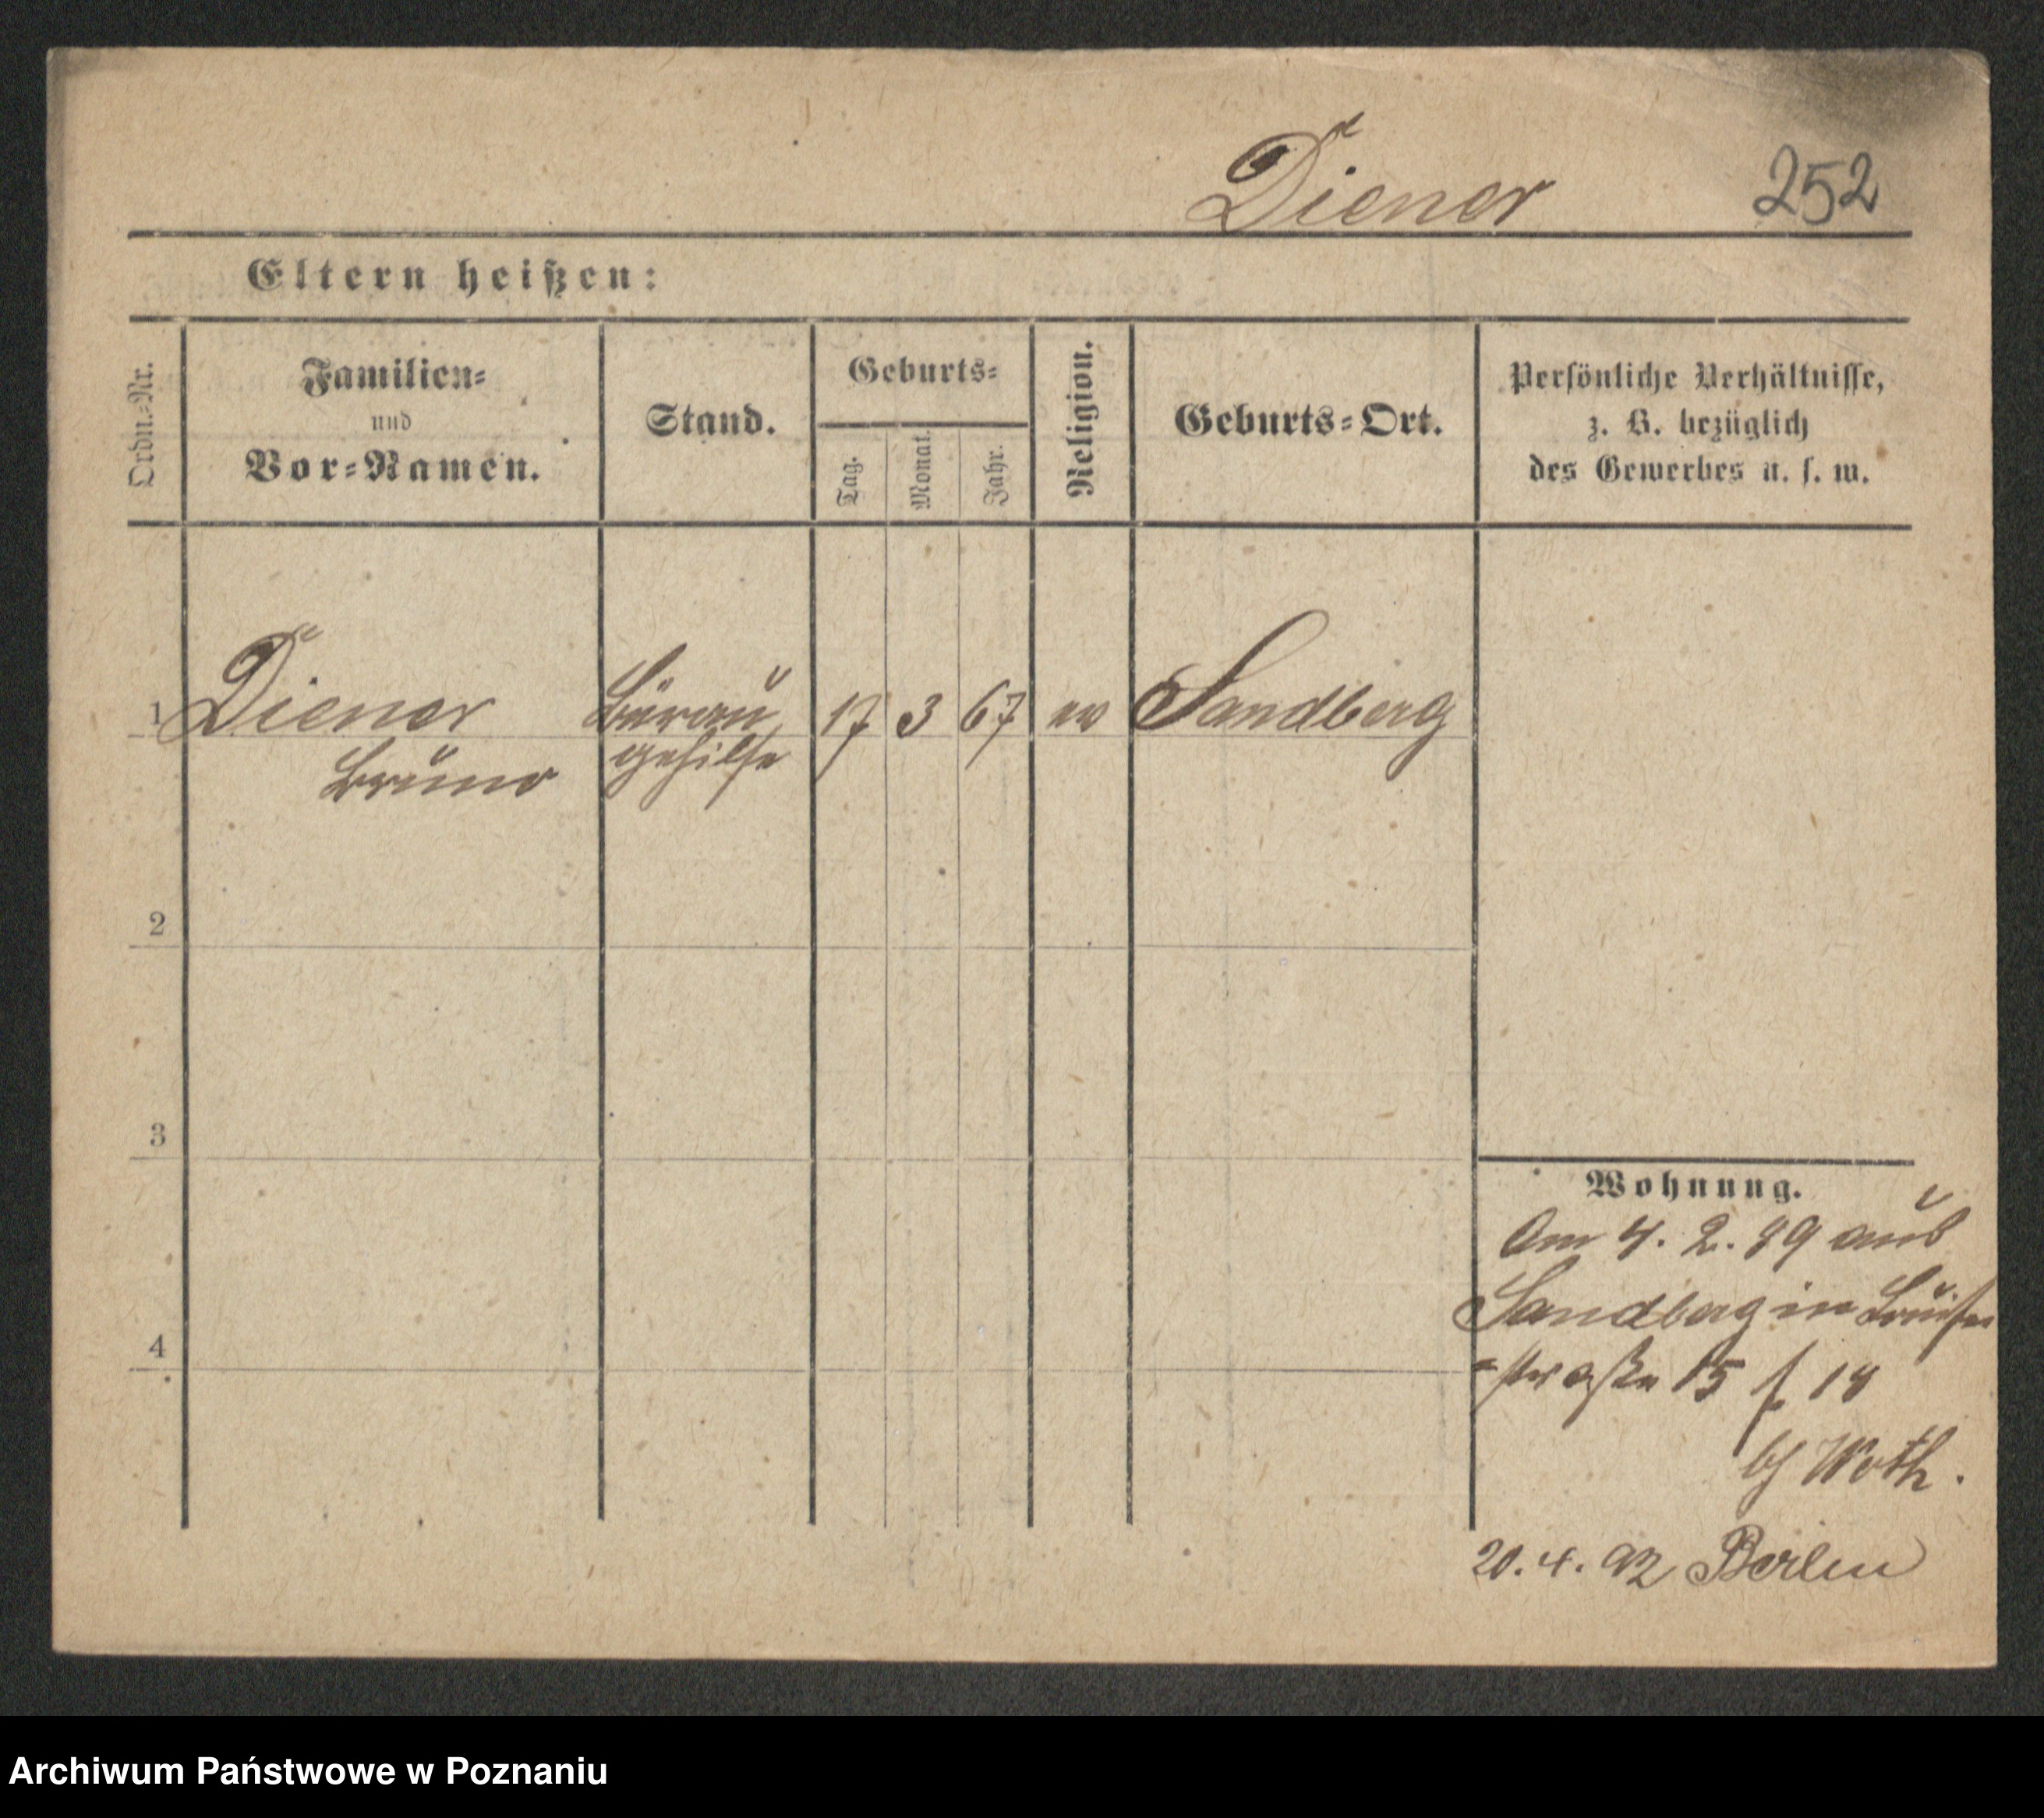 Diener 252
Eltern heißen:
Ordn.-Nr.
Familien-
und
Vor-Namen.
Stand.
Geburts-
Tag.
Monat.
Jahr.
Religion.
Geburts-Ort.
Persönliche Verhältnisse,
z. B. bezüglich
des Gewerbes u. s. w.
1 Diener Büreau 17 3 67 ev Sandberg
Bruno gehilfe
2
3
4
Wohnung.
Am 4. 2. 89 aus
Sandberg in Louisen
-straße 15 f 18
bei Woth.
20. 4. 92 Berlin
Archiwum Państwowe w Poznaniu